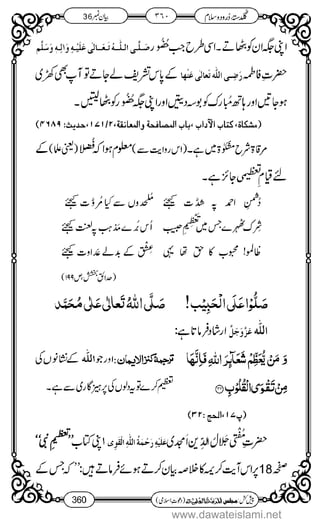 بیان نمبر 36
۳۶۰
گلدستۂ دُرود و سلام
اپنی جگہ ان کو بٹھاتے۔ اسی طرح جب حُضُور صَلَّی اللہُ تَعَالٰی عَلَیْہِ وَاٰلِہٖ وَسَلَّم
حضرتِ فاطمہ رَضِیَ اللہُ تَعَالٰی عَنْہَا کے پاس تشریف لے جاتے تو آپ بھی کھڑی
ہو جاتیں اور ہاتھ مُبارک کو بوسہ دیتیں اور اپنی جگہ حُضُور کو بٹھا لیتیں۔
(مشکاۃ، کتاب الآداب، باب المصافحۃ والمعانقۃ، ۲/۱۷۱، حدیث: ۴۶۸۹)
مرقاۃ شرح مِشکوٰۃ میں ہے۔ (اس روایت سے) معلوم ہوا کہ فُضَلاء (یعنی علماء) کے
لئے قیامِ تعظیمی جائز ہے۔
دُشمنِ احمد پہ شدّت کیجئے مُلحِدوں کی کیا مُرُوَّت کیجئے
شِرک ٹھہرے جس میں تعظیمِ حبیب اُس بُرے مَذہَب پہ لعنت کیجئے
ظالمو! محبوب کا حق تھا یہی عِشق کے بدلے عداوت کیجئے
(حدائقِ بخشش، ص۱۹۹)
صَلُّوْا عَلَی الْحَبِیْب! صَلَّی اللہُ تَعَالٰی عَلٰی مُحَمَّد
اللہ عَزَّوَجَلَّ ارشاد فرماتا ہے:
وَ مَنْ یُّعَظِّمْ شَعَآىٕرَ اللّٰهِ فَاِنَّهَا
مِنْ تَقْوَى الْقُلُوْبِ ﴿۳۲﴾
(پ۱۷، الحج: ۳۲)
ترجمۂ کنز الایمان: اور جو اللہ کے نشانوں کی
تعظیم کرے تو یہ دِلوں کی پرہیزگاری سے ہے۔
حضرتِ مُفتی جَلالُ الدِّین اَمجدی عَلَیْہِ رَحْمَۃُ اللہِ الْقَوِی اپنی کتاب ”تعظیمِ نبی“
صفحہ 18 پر اس آیتِ کریمہ کا خلاصہ بیان کرتے ہوئے فرماتے ہیں: ”کہ جس کے
360
www.dawateislami.net